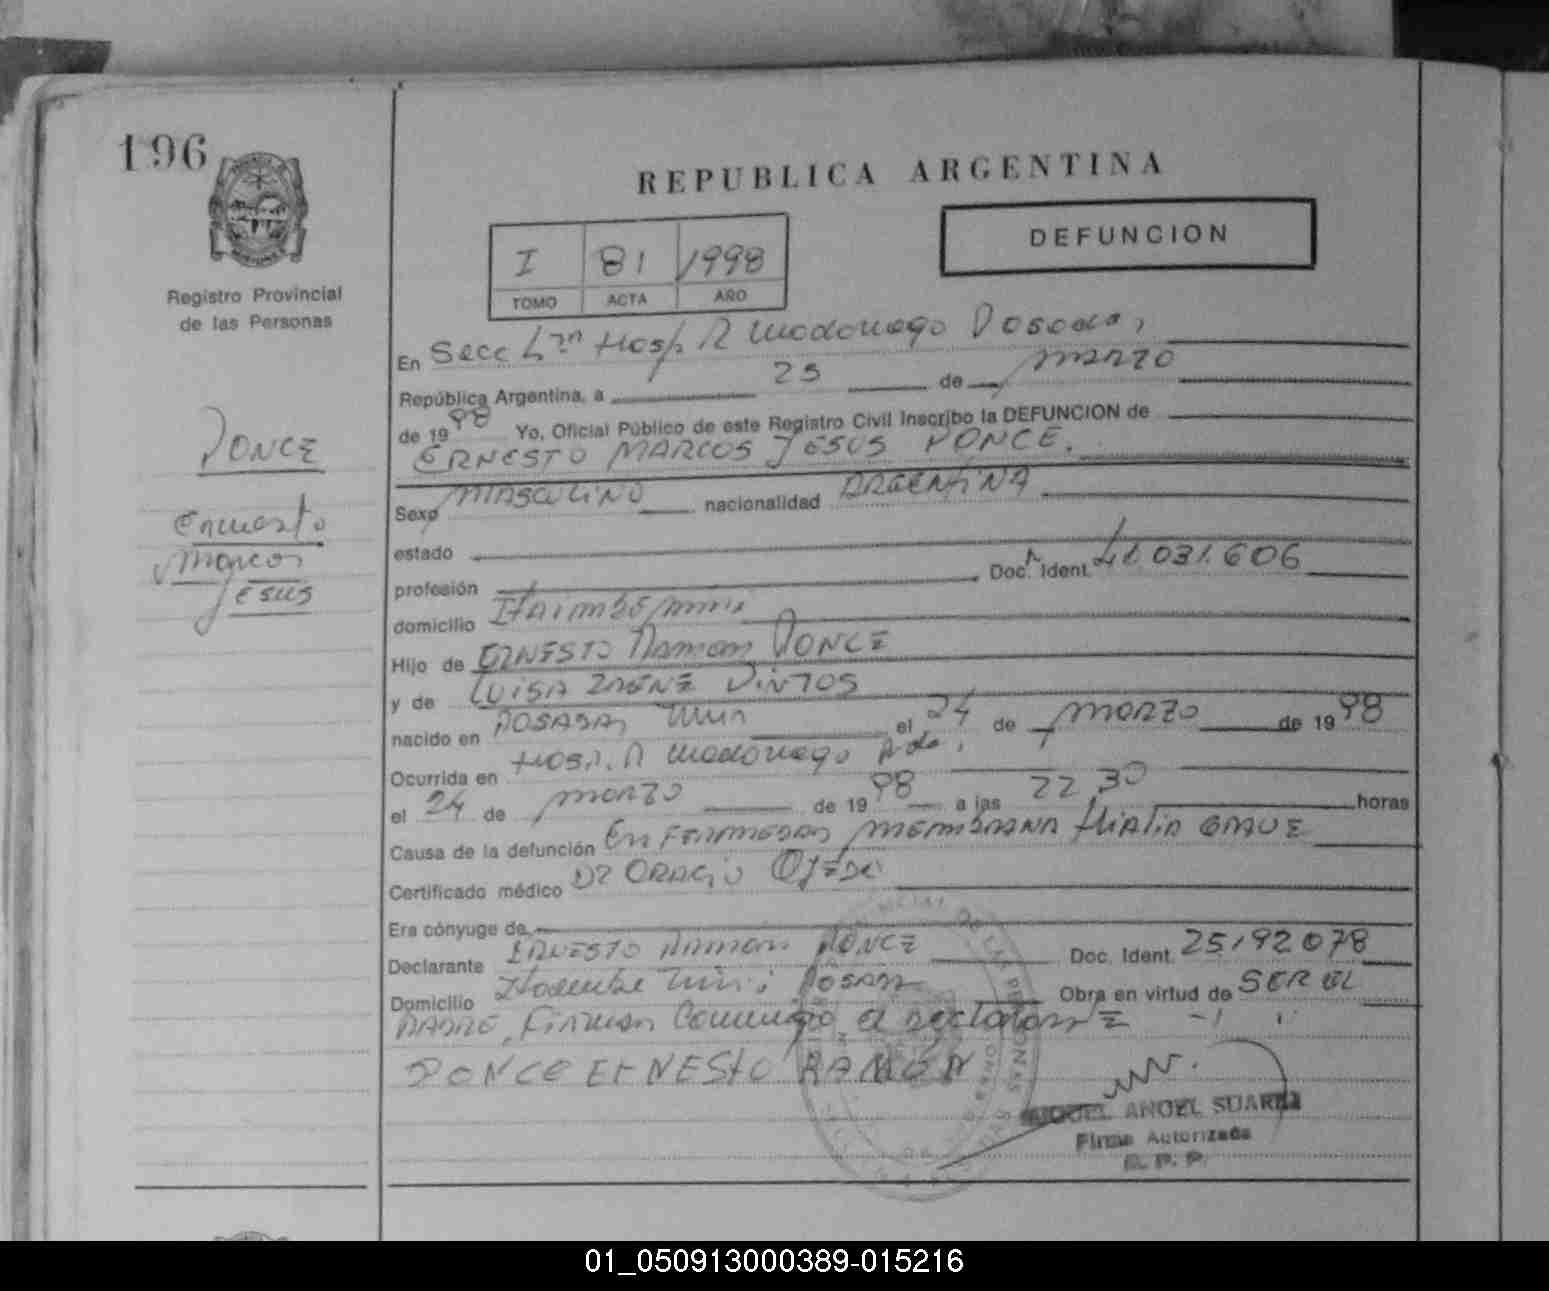 196
REPUBLICA ARGENTINA
DEFUNCION
I 81 1998
TOMO ACTA AÑO
Registro Provincial
de las Personas
En Secc Hosp R Madariaga Posadas,
República Argentina, a 25 de marzo
de 1998 Yo, Oficial Público de este Registro Civil inscribo la DEFUNCION de
ERNESTO MARCOS JESUS PONCE.
PONCE
Ernesto
Marcos
Jesus
Sexo MASCULINO nacionalidad ARGENTINA
estado
profesión Doc. Ident. 41.031.606
domicilio
Hijo de ERNESTO Ramon PONCE
y de LUISA IRENE
nacido en POSADAS, el 24 de marzo de 1998
Ocurrida en Hosp. R Madariaga Pdas.
el 24 de marzo de 1998 a las 22,30 horas
Causa de la defunción Enfermedad MEMBRANA HIALINA GRAVE
Certificado médico DR ORACIO OJEDA
Era cónyuge de
Declarante ERNESTO RAMON PONCE Doc. Ident. 25.192.078
Domicilio Posadas Obra en virtud de SER EL
PADRE, Firman Conmigo el declarante
PONCE ERNESTO RAMON
MIGUEL ANGEL SUAREZ
Firma Autorizada
R. P. P.
01_050913000389-015216